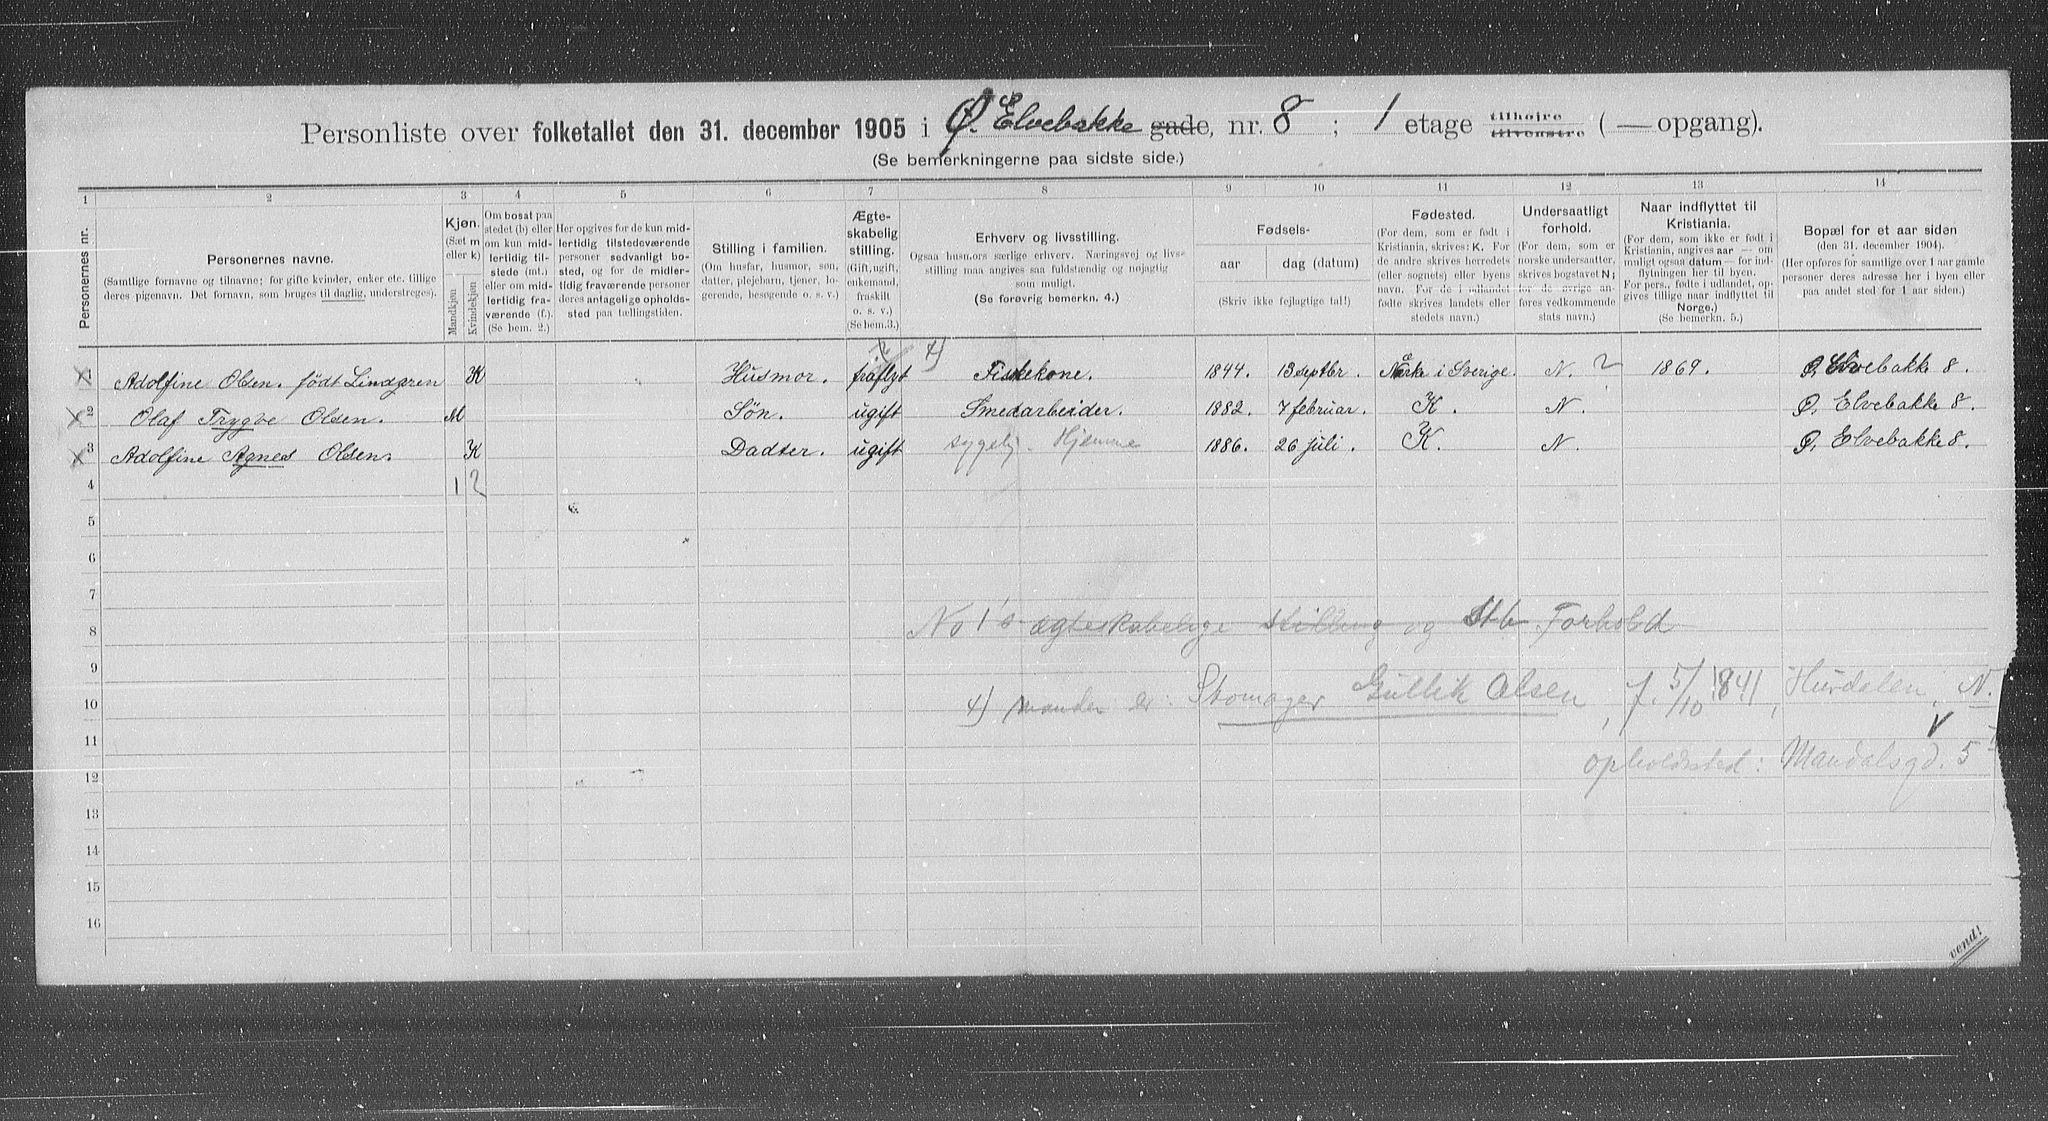 Personliste over folketallet den 31. december 1905 i Ø. Elvebakke gade, nr. 8 ; 1 etage tilhøjre tilvenstre ( — opgang).
(Se bemerkningerne paa sidste side.)
1 2 3 4 5 6 7 8 9 10 11 12 13 14
Personernes nr.
Personernes navne.
(Samtlige fornavne og tilnavne; for gifte kvinder, enker etc. tillige
deres pigenavn. Det fornavn, som bruges til daglig, understreges).
Kjøn.
(Sæt m
eller k)
Mandkjøn
Kvindekjøn
Om bosat paa
stedet (b) eller
om kun mid-
lertidig til-
stede (mt.)
eller om mid-
lertidig fra-
værende (f.).
(Se bem. 2.)
Her opgives for de kun mid-
lertidig tilstedeværende
personer sedvanligt bo-
sted, og for de midler-
tidig fraværende personer
deres antagelige opholds-
sted paa tællingstiden.
Stilling i familien.
(Om husfar, husmor, søn,
datter, plejebarn, tjener, lo-
gerende, besøgende o. s. v.)
Ægte-
skabelig
stilling.
(Gift, ugift,
enkemand,
fraskilt
o. s. v.)
(Se bem.3.)
Erhverv og livsstilling.
Ogsaa husmors særlige erhverv. Næringsvej og livs-
stilling maa angives saa fuldstændig og nøjagtig
som muligt.
(Se forøvrig bemerkn. 4.)
Fødsels-
aar
dag (datum)
(Skriv ikke fejlagtige tal!)
Fødested.
(For dem, som er født i
Kristiania, skrives: K. For
de andre skrives herredets
(eller sognets) eller byens
navn. For de i udlandet
fødte skrives landets eller
stedets navn.)
Undersaatligt
forhold.
(For dem, som er
norske undersaatter,
skrives bogstavet N;
for de øvrige an-
føres vedkommende
stats navn.)
Naar indflyttet til
Kristiania.
(For dem, som ikke er født i
Kristiania, angives aar — om
muligt saavel datum — for ind-
flytningen her til byen.
For pers., fødte i udlandet, op-
gives tillige naar indflyttet til
Norge.)
(Se bemerkn. 5.)
Bopæl for et aar siden
(den 31. december 1904).
(Her opføres for samtlige over 1 aar gamle
personer deres adresse her i byen eller
paa andet sted for 1 aar siden.)
1 Adolfine Olsen. født Lindgren K Husmor. fraflyt 4) Fiskekone. 1844. 13 septbr. Närke i Sverige. N. 2 1869. Ø. Elvebakke 8.
2 Olaf Trygve Olsen. M Søn. ugift Smedarbeider. 1882. 7 februar. K. N. Ø. Elvebakke 8.
3 Adolfine Agnes Olsen. K Dadter. ugift sygelig. Hjemme 1886. 26 juli. K. N. Ø. Elvebakke 8.
4 1 2
5
6
7
8 No 1's ægteskabelige stilling og Stb Forhold
9
10 4) manden er: Skomager Gullik Olsen, f. 5/10 1841, Hurdalen, N.
11
12 opholdssted: Mandalsgd. 5
13
14
15
16
vend!